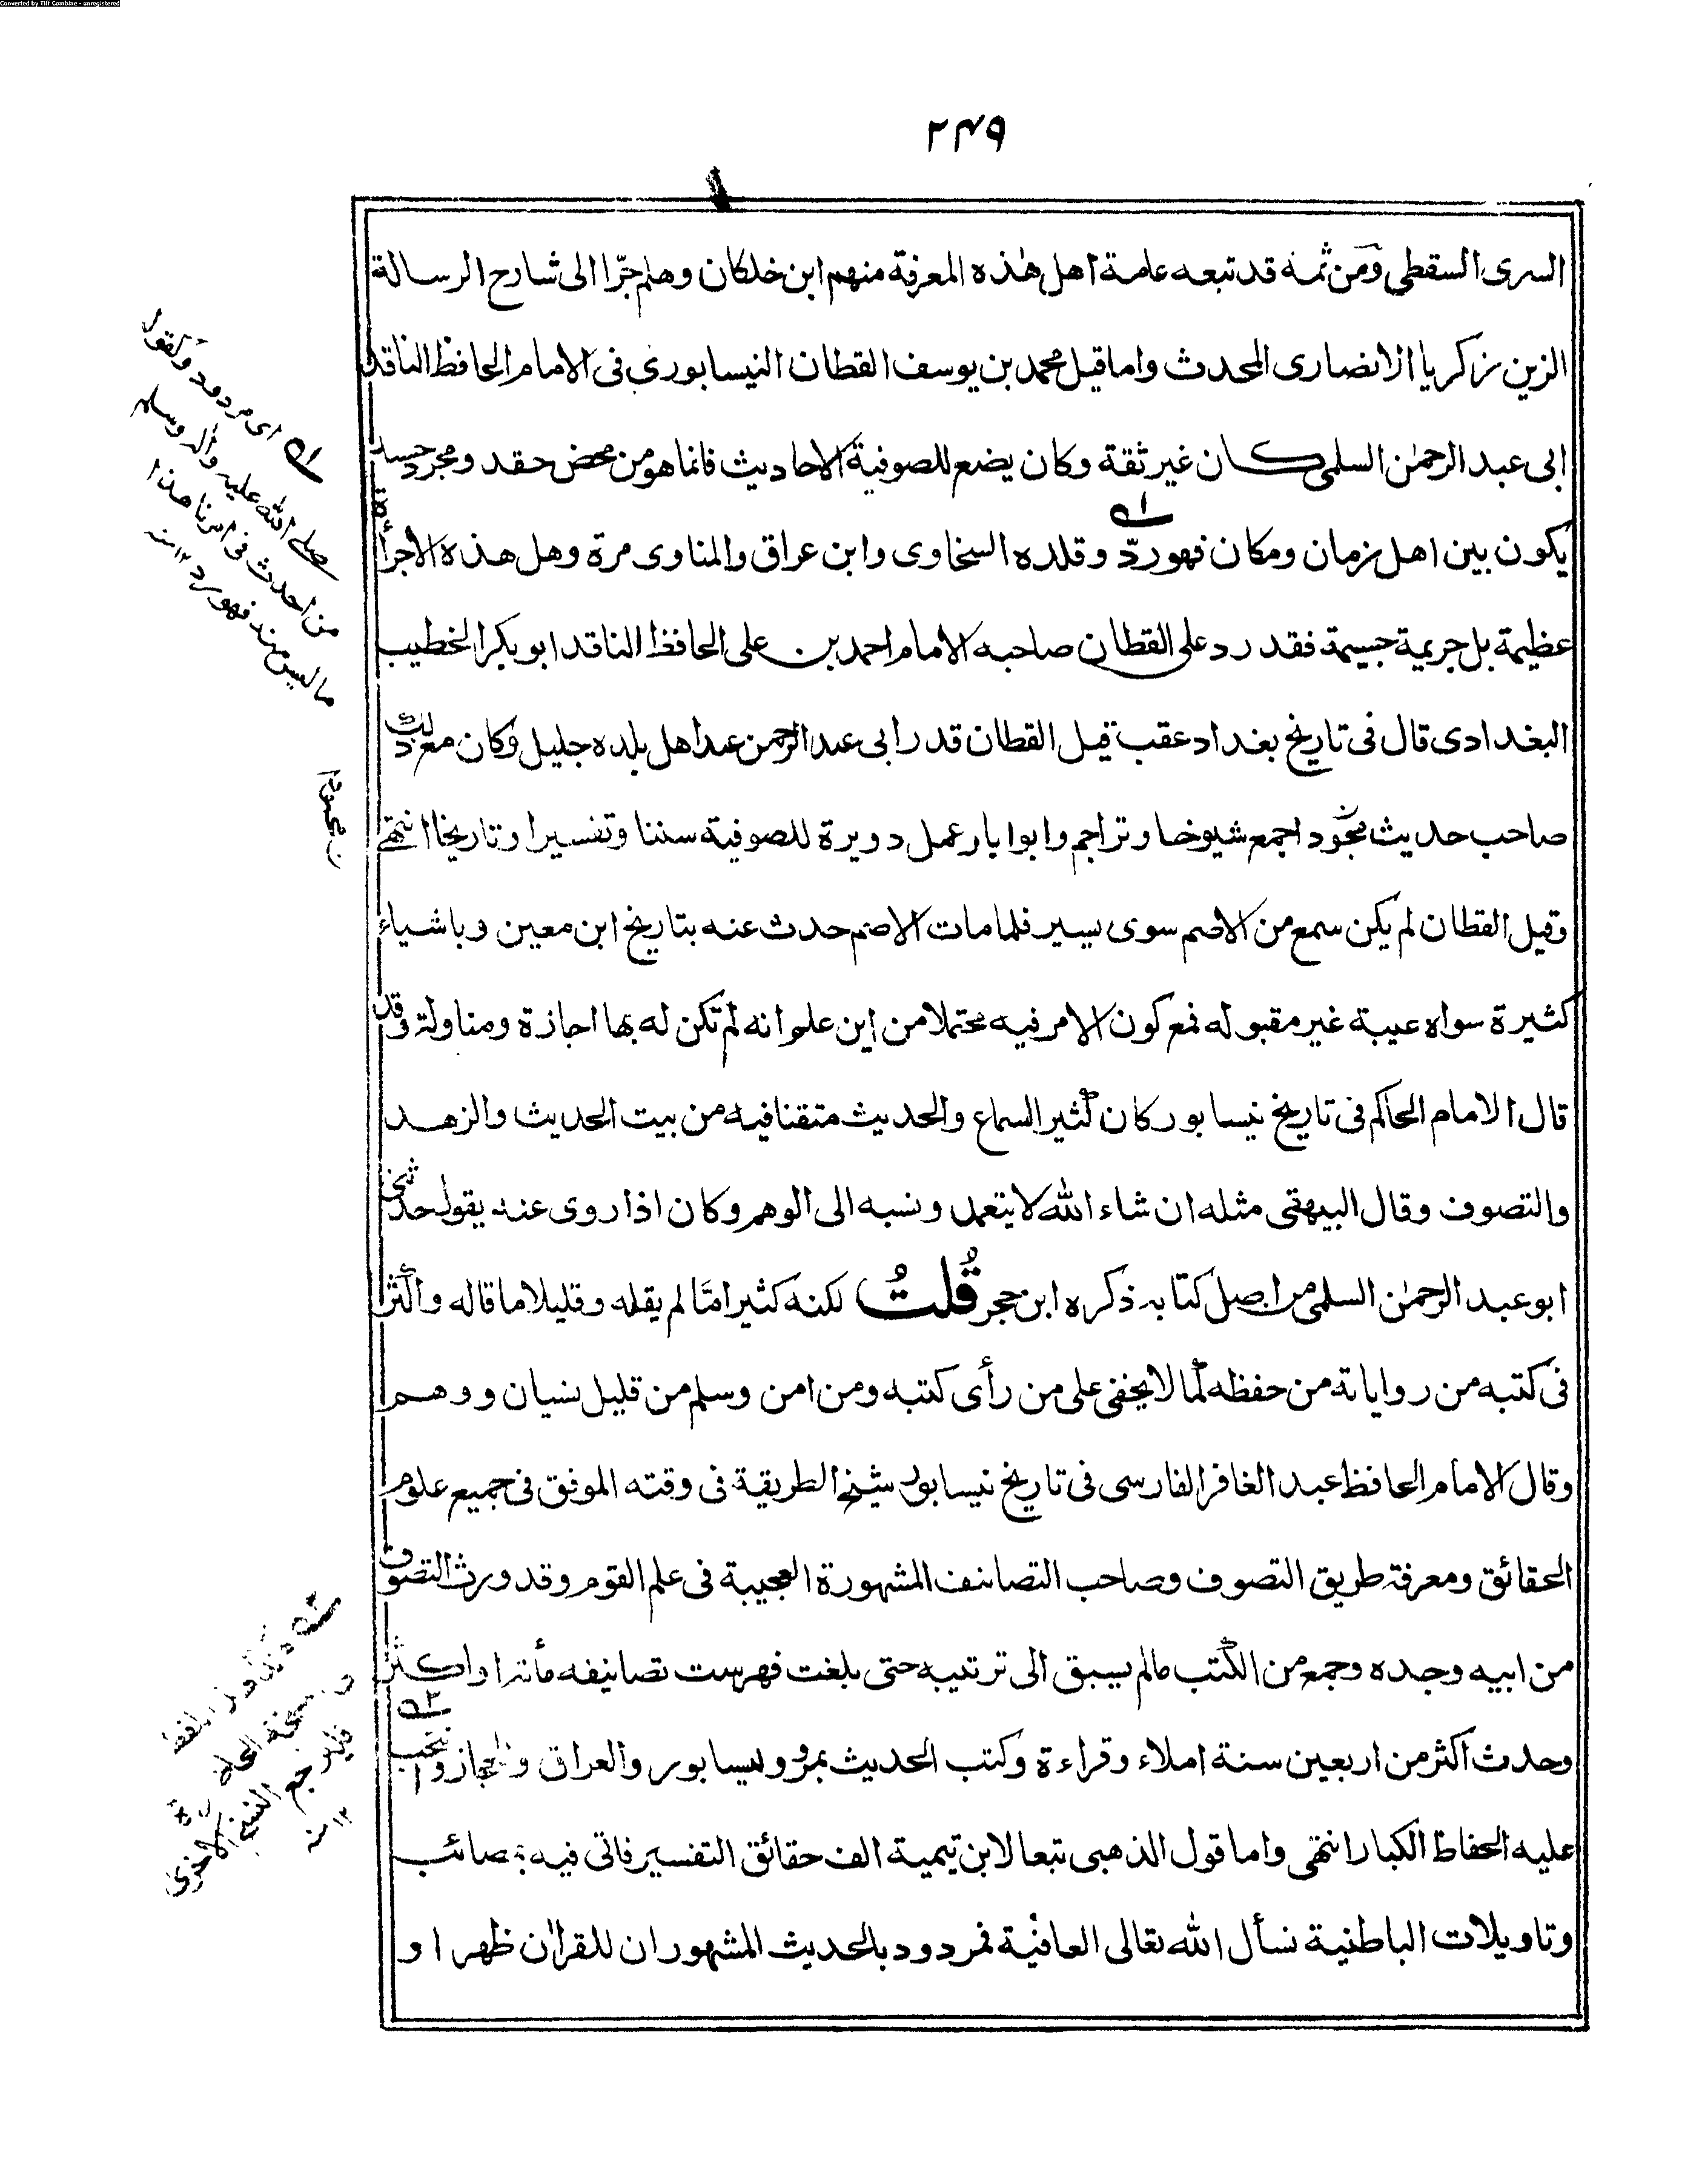 Converted by Tiff Combine - unregistered
۲۴۹
السری السقطی ومن ثمه قد تبعه عامة اهل هٰذه المعرفة منهم ابن خلکان وهلم جرّا الی شارح الرسالة
الزین زکریا الانصاری المحدث واما قیل محمد بن یوسف القطان النیسابوری فی الامام الحافظ الناقد
ابی عبد الرحمٰن السلمی کان غیر ثقة وکان یضع للصوفیة الاحادیث فانما هو من محض حقد ومجرد حسد
یکون بین اهل زمان ومکان فهو ردّ وقلده السخاوی وابن عراق والمناوی مرة وهل هذه الا جرأة
عظیمة بل جریمة جسیمة فقد رد علی القطان صاحبه الامام احمد بن علی الحافظ الناقد ابو بکر الخطیب
البغدادی قال فی تاریخ بغداد عقب قیل القطان قدر ابی عبد الرحمن عند اهل بلده جلیل وکان مع ذلک
صاحب حدیث مجّودا جمع شیوخا وتراجم وابوابا وعمل دویرة للصوفیة سننا وتفسیرا وتاریخا انتهی
وقیل القطان لم یکن سمع من الاصم سوی یسیر فلما مات الاصم حدث عنه بتاریخ ابن معین وباشیاء
کثیرة سواه عیبة غیر مقبوله فمع کون الامر فیه محتملا من این علم انه لم تکن له بها اجازة ومناولة وقد
قال الامام الحاکم فی تاریخ نیسابور کان کثیر السماع والحدیث متقنا فیه من بیت الحدیث والزهد
والتصوف وقال البیهقی مثله ان شاء الله لا یتعمد ونسبه الی الوهم وکان اذا روی عنه یقول حدثنی
ابو عبد الرحمٰن السلمی من اصل کتابه ذکره ابن حجر قُلتُ لکنه کثیر امّا لم یقله وقلیلا ما قاله واکثر
فی کتبه من روایاته من حفظه کما لا یخفی علی من رأی کتبه ومن امن وسلم من قلیل نسیان ووهم
وقال الامام الحافظ عبد الغافر الفارسی فی تاریخ نیسابور شیخ الطریقة فی وقته الموفق فی جمیع علوم
الحقائق ومعرفة طریق التصوف وصاحب التصانیف المشهورة العجیبة فی علم القوم وقد ورث التصوف
من ابیه وجده وجمع من الکتب ما لم یسبق الی ترتیبه حتی بلغت فهرست تصانیفه مأته او اکثر
وحدث اکثر من اربعین سنة املاء وقراءة وکتب الحدیث بمرو ونیسابور والعراق والحجاز وانتخب
علیه الحفاظ الکبار انتهی واما قول الذهبی تبعا لابن تیمیة الف حقائق التفسیر فاتی فیه بمصائب
وتاویلات الباطنیة نسأل الله تعالی العافیة فمردود بالحدیث المشهور ان للقراٰن ظهرا و
۱ه ای مردود ولقوله
صلی الله علیه واٰله وسلم
من احدث فی امرنا هذا
ما لیس منه فهو رد ۱۲ منه
فلیراجع النسخ الاخری
۱۲ منه